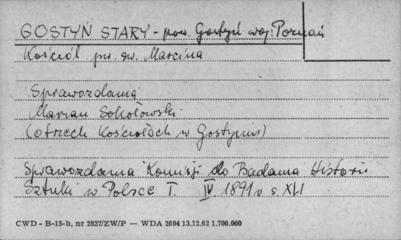 GOSTYŃ STARY - pow. Gostyń woj. Poznań
Kościół pw. św. Marcina
Sprawozdania
Marian Sokołowski
(o trzech Kościołach w Gostyniu)
Sprawozdania Komisji do Badania Historii
Sztuki w Polsce T. IV. 1891 r s. XLI
CWD - B-15-b, nr 2827/ZW/P — WDA 2694 13.12.62 1.700.000